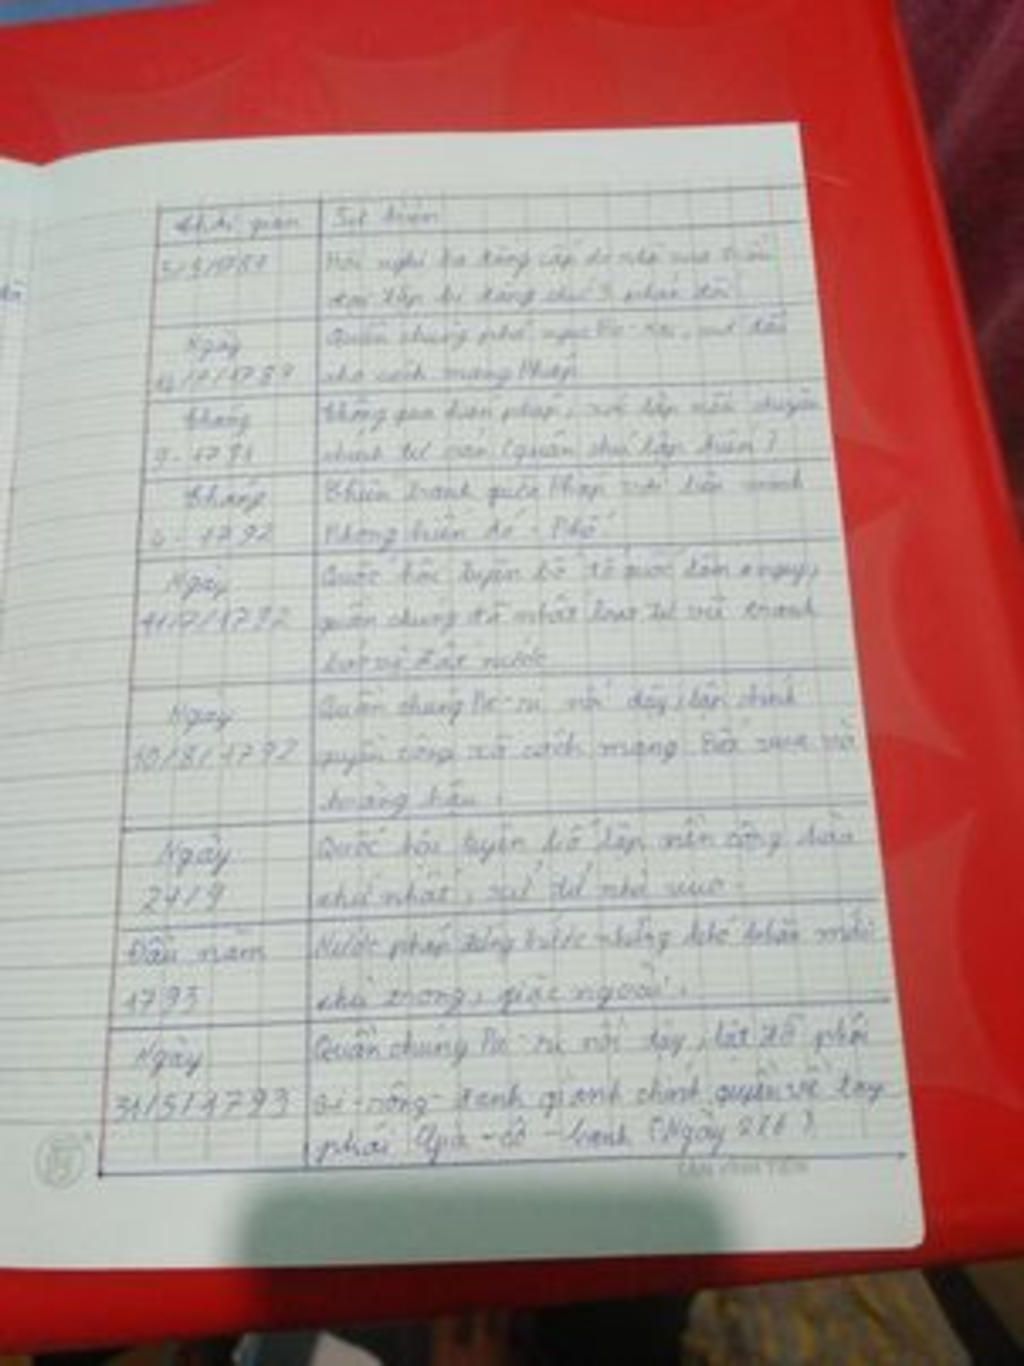 Thời gian | Sự kiện
5/5/1789 | Hội nghị ba đẳng cấp do nhà vua triệu
tập bị đẳng cấp 3 phản đối
Ngày | Quần chúng phá ngục Ba-xti, mở đầu
14/7/1789 | cho cách mạng Pháp
Tháng | Thông qua hiến pháp, xác lập nền chuyên
9-1791 | chính tư sản (quân chủ lập hiến)
Tháng | Chiến tranh giữa Pháp với liên minh
4-1792 | Phong kiến Áo-Phổ
Ngày | Quốc hội tuyên bố tổ quốc lâm nguy,
11/7/1792 | quần chúng đã nhất loạt tự vũ trang
bảo vệ đất nước
Ngày | Quần chúng Pa-ri nổi dậy, lập chính
10/8/1792 | quyền công xã cách mạng. Bắt vua và
hoàng hậu.
Ngày | Quốc hội tuyên bố lập nền cộng hòa
21/9 | thứ nhất, xử tử nhà vua.
Đầu năm | Nước pháp đứng trước những khó khăn mới
1793 | thù trong, giặc ngoài.
Ngày | Quần chúng Pa-ri nổi dậy, lật đổ phái
31/5/1793 | Gi-rông-đanh giành chính quyền về tay
phái Gia-cô-banh (Ngày 2/6)